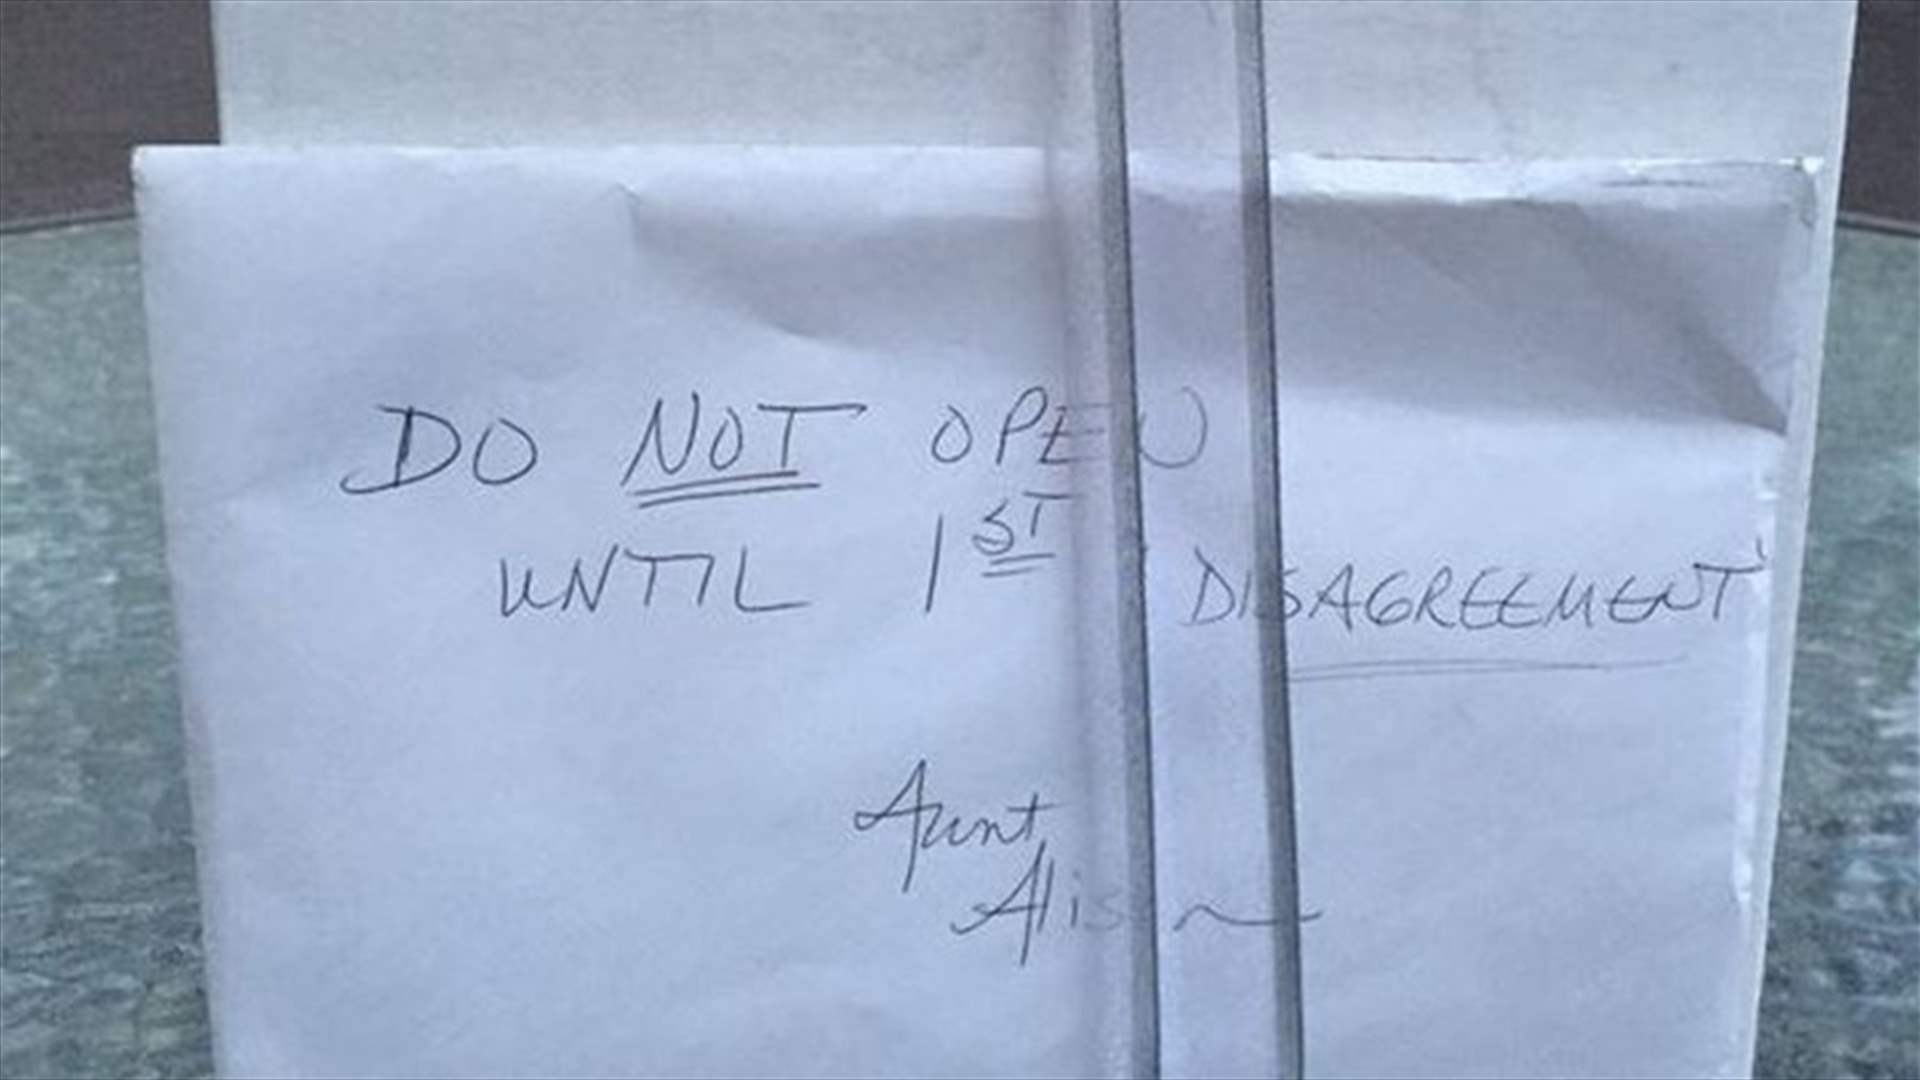 DO NOT OPEN
UNTIL 1ST DISAGREEMENT
Aunt
Alison